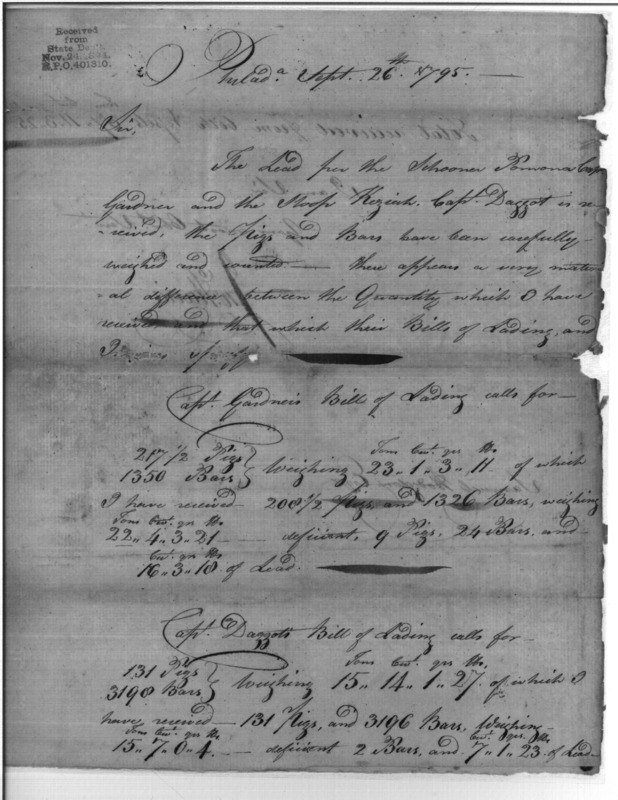 Received
from
State Dept.
Nov. 24,
R.P.O. 401310.
Philad.a Sept. 26th 1795. —
Sir,
The Lead per the Schooner Pomona Capt
Gardner and the Sloop Keziah, Capt. Daggot is re-
-ceived, the Pigs and Bars have been carefully
weighed and counted — there appears a very materi
-al difference between the Quantity which I have
received and that which their Bills of Lading, and
Capt. Gardners Bill of Lading calls for —
217 1/2 Pigs
1350 Bars } Weighing
Tons Cwt. qrs lbs
23 .. 1 .. 3 .. 11. of which
I have received 208 1/2 Pigs, and 1326 Bars, weighing
Tons Cwt. qrs lbs
22 .. 4 .. 3 .. 21 — deficient, 9 Pigs, 24 Bars. and
Cwt. qrs lbs
16 .. 3 .. 18 of Lead.
Capt. Daggots Bill of Lading calls for —
131 Pigs
3198 Bars } Weighing
Tons Cwt. qrs lbs,
15 .. 14 .. 1 .. 27. of which I
have received — 131 Pigs, and 3196 Bars, Weighing —
Tons Cwt. qrs lbs
15 .. 7 .. 0 .. 4. — deficient 2 Bars, and
Cwt. qrs. lbs
7 .. 1 .. 23. of Lead —